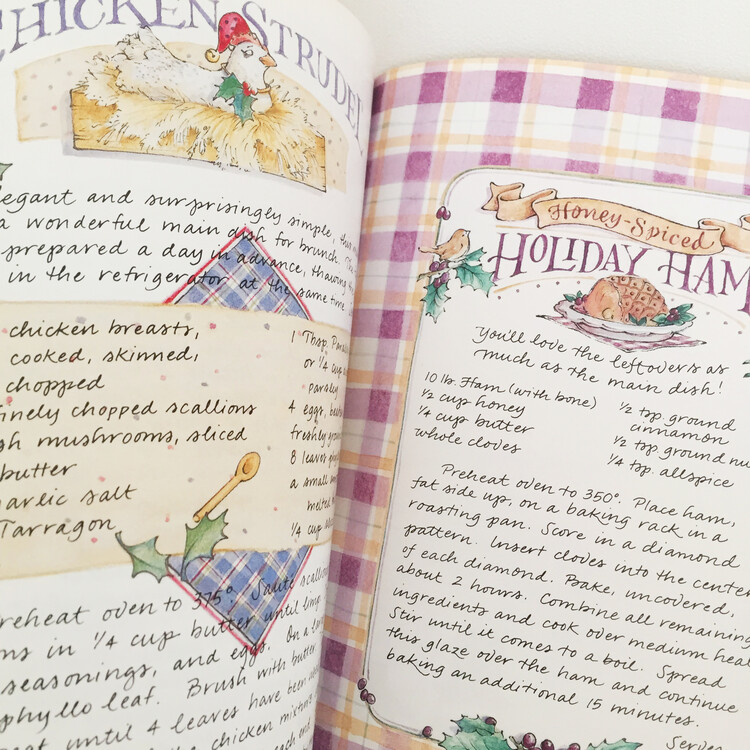 CHICKEN STRUDEL
elegant and surprisingly simple,
a wonderful main dish for brunch.
prepared a day in advance, thawing
in the refrigerator at the same time
chicken breasts,
cooked, skinned,
chopped
finely chopped scallions
mushrooms, sliced
butter
garlic salt
Tarragon
1 Tbsp.
or 1/4 cup
parsley
4 eggs,
freshly
8 leaves
a small
melted
1/4 cup
Preheat oven to 375°. Sauté
in 1/4 cup butter until limp
seasonings, and eggs. On a
phyllo leaf. Brush with butter.
until 4 leaves have been
the chicken mixture
each end
Honey-Spiced
HOLIDAY HAM
You'll love the leftovers as
much as the main dish!
10 lb. Ham (with bone)
1/2 cup honey
1/4 cup butter
whole cloves
1/2 tsp. ground
cinnamon
1/2 tsp. ground
1/4 tsp. allspice
Preheat oven to 350°. Place ham,
fat side up, on a baking rack in a
roasting pan. Score in a diamond
pattern. Insert cloves into the center
of each diamond. Bake, uncovered,
about 2 hours. Combine all remaining
ingredients and cook over medium heat
Stir until it comes to a boil. Spread
this glaze over the ham and continue
baking an additional 15 minutes.